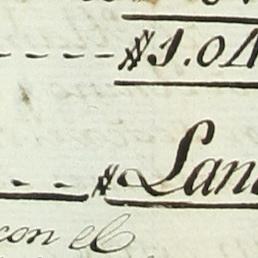 $1.0
$ Lan
con el